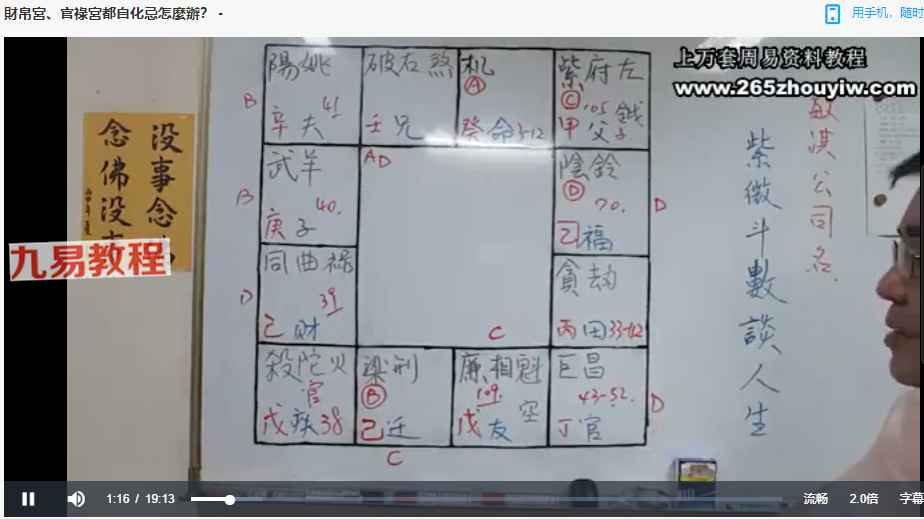 財帛宮、官祿宮都自化忌怎麼辦？ -
用手机，随时
上万套周易资料教程
www.265zhouyiw.com
没事念
念佛没
九易教程
陽姚
B
41
辛夫
破右煞
壬兄
机
A
癸命3-12
紫府左
C 105 鉞
甲父子
武羊
B
40.
庚子
AD
陰鈴
D
70.
D
己福
同曲祿
D
39
己财
貪劫
丙田33-42
C
殺陀火
官
戊疾38
梁刑
B
己迁
C
廉相魁
109
空
戊友
巨昌
43-52.
D
丁官
紫微斗數談人生
公司名
1:16 / 19:13
流畅
2.0倍
字幕